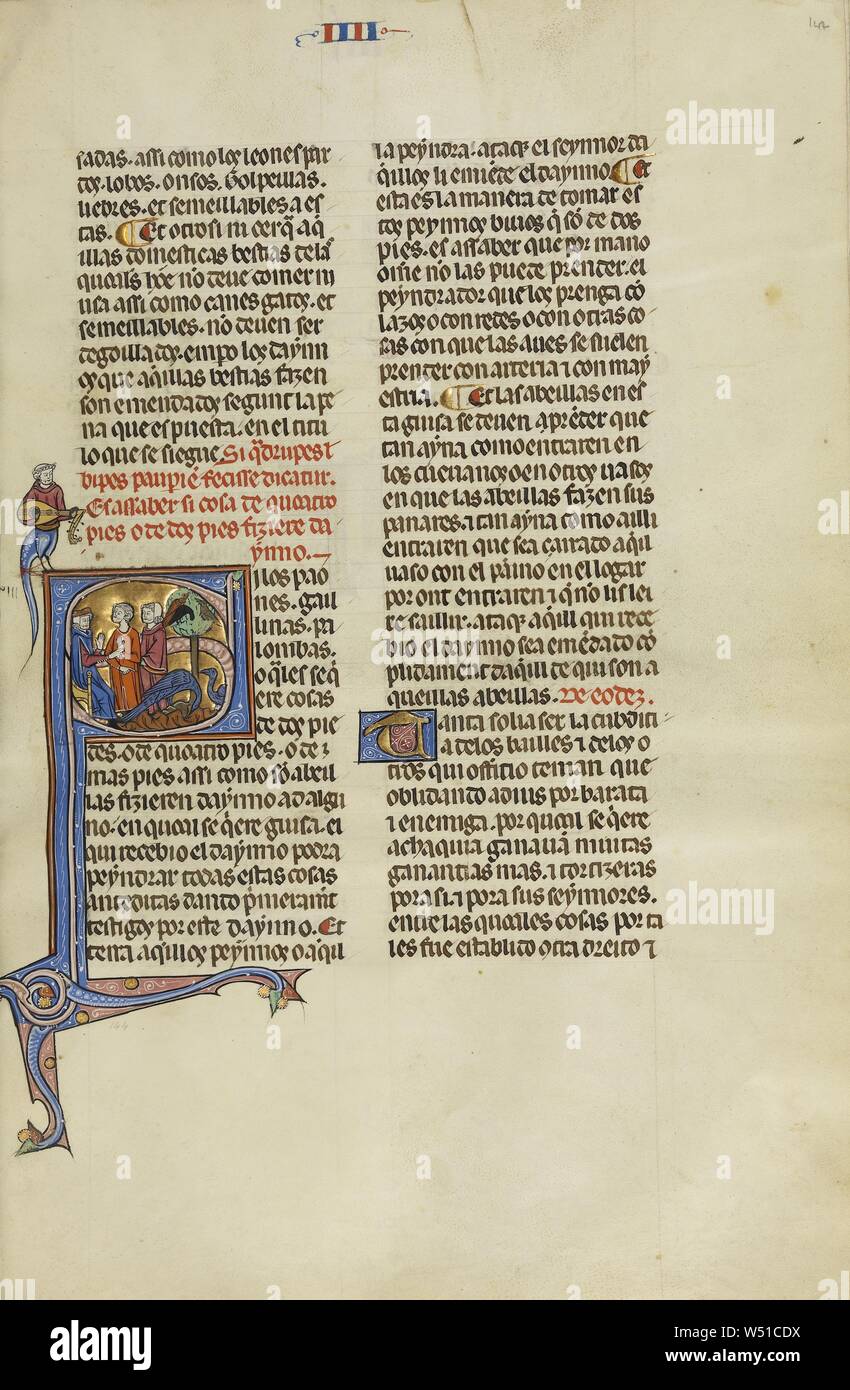 IIII
142
sadas. assi como los leones par
dos. lobos. onsos. Golpeillas.
liebres. et semeillables a es
tas. Et otrosi ni cerq̃ aq̃
illas domesticas bestias delas
quoals hõe no deue comer ni
usa assi como canes gatos. et
semeillables. no deuen ser
degoillados. empo los daynn
os que aq̃illas bestias fizen
son emendados segunt la pe
na que es puesta. en el titu
lo que se siegue Si q̃drupes l
bipes paupiẽ fecisse dicatur.
Es assaber si cosa de quoatro
pies o de dos pies fiziere da
ynno.
VIII
I los pao
nes. gall
linas. pa
lombas.
o q̃les seq̃
ere cosas
de dos pie
des. o de quoatro pies. o de
mas pies assi como sõ abeil
las fizieren daynno ad algu
no. en quoal se q̃ere guisa. el
qui recebio el daynno podra
peyndrar todas estas cosas
anteditas dando p̃merament
testigos por este daynno. Et
terra aq̃illos peynnos o aq̃il
la peyndra. ataq̃ el seynnor da
q̃illos li emiẽde el daynno. Et
esta es la manera de tomar es
tos peynnos biuos q̃ sõ de dos
pies. es assaber que por mano
õme no las puede prender. el
peyndrador que los prenga cõ
lazos o con redes o con otras co
sas con que las aues se suelen
prender con arteria ⁊ con may
estria. Et las abeillas en es
ta guisa se deuen a prẽder que
tan ayna como entraren en
los cueuanos o en otros uasos
en que las abeillas fazen sus
panares. ⁊ tan ayna como ailli
entraren que sea çarrado aq̃il
uaso con el pãno en el logar
por ont entraren ⁊ q̃ no lis lei
xe saillir. ataq̃ aq̃ill qui rece
bio el daynno sea emẽdado cõ
plidament daq̃ill de qui son a
queillas abeillas. De eodez.
Tanta solia ser la cubdici
a delos bailles ⁊ delos o
tros qui officio tenian que
oblidando a dius por barata
⁊ enemiga. por quoal se q̃ere
achaquia ganauã muitas
ganancias malas. ⁊ tortizeras
pora si. ⁊ pora sus seynnores.
entre las quoales cosas por ta
les fue establido otra dreito ⁊
144
alamy
Image ID: W51CDX
www.alamy.com